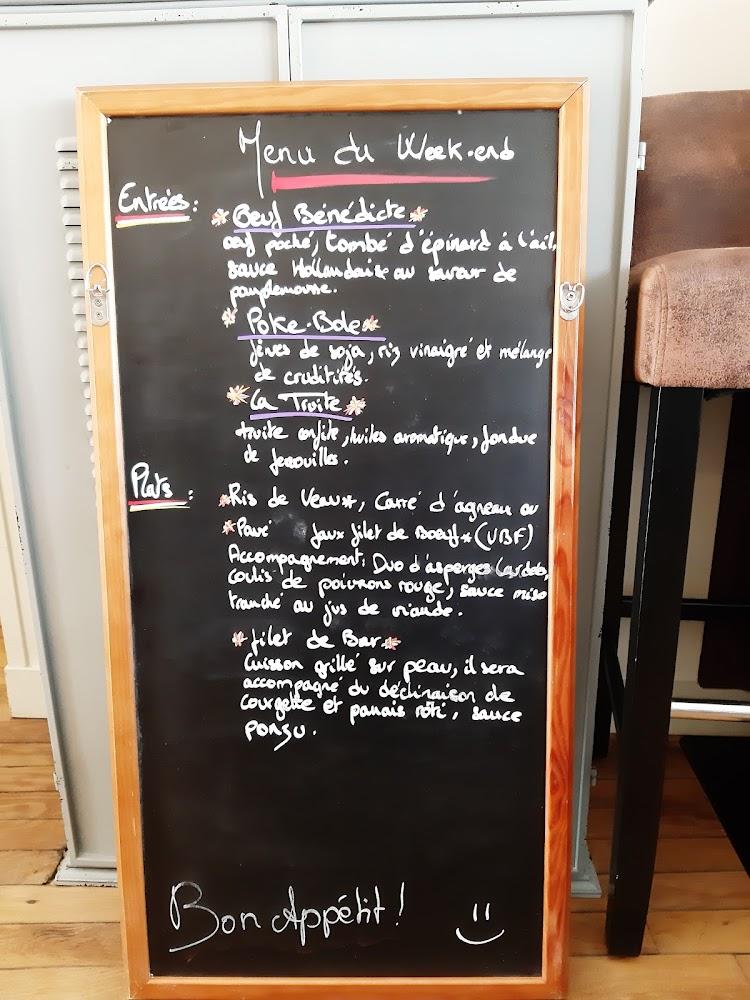 Menu du Week-end
Entrées:
Oeuf Bénédicte
oeuf poché, tombé d'épinard à l'ail,
sauce Hollandaise au saveur de
pamplemousse.
Poke-Bole
fèves de soja, riz vinaigré et mélange
de crudités.
La Truite
truite confite, huiles aromatique, fondue
de fenouilles.
Plats:
*Ris de Veau*, Carré d'agneau ou
*Pavé faux filet de Boeuf*(VBF)
Accompagnement: Duo d'asperges
coulis de poivrons rouge, sauce miso
tranché au jus de viande.
*filet de Bar*
Cuisson grillé sur peau, il sera
accompagné du déclinaison de
courgette et panais rôti, sauce
ponzu.
Bon Appétit!